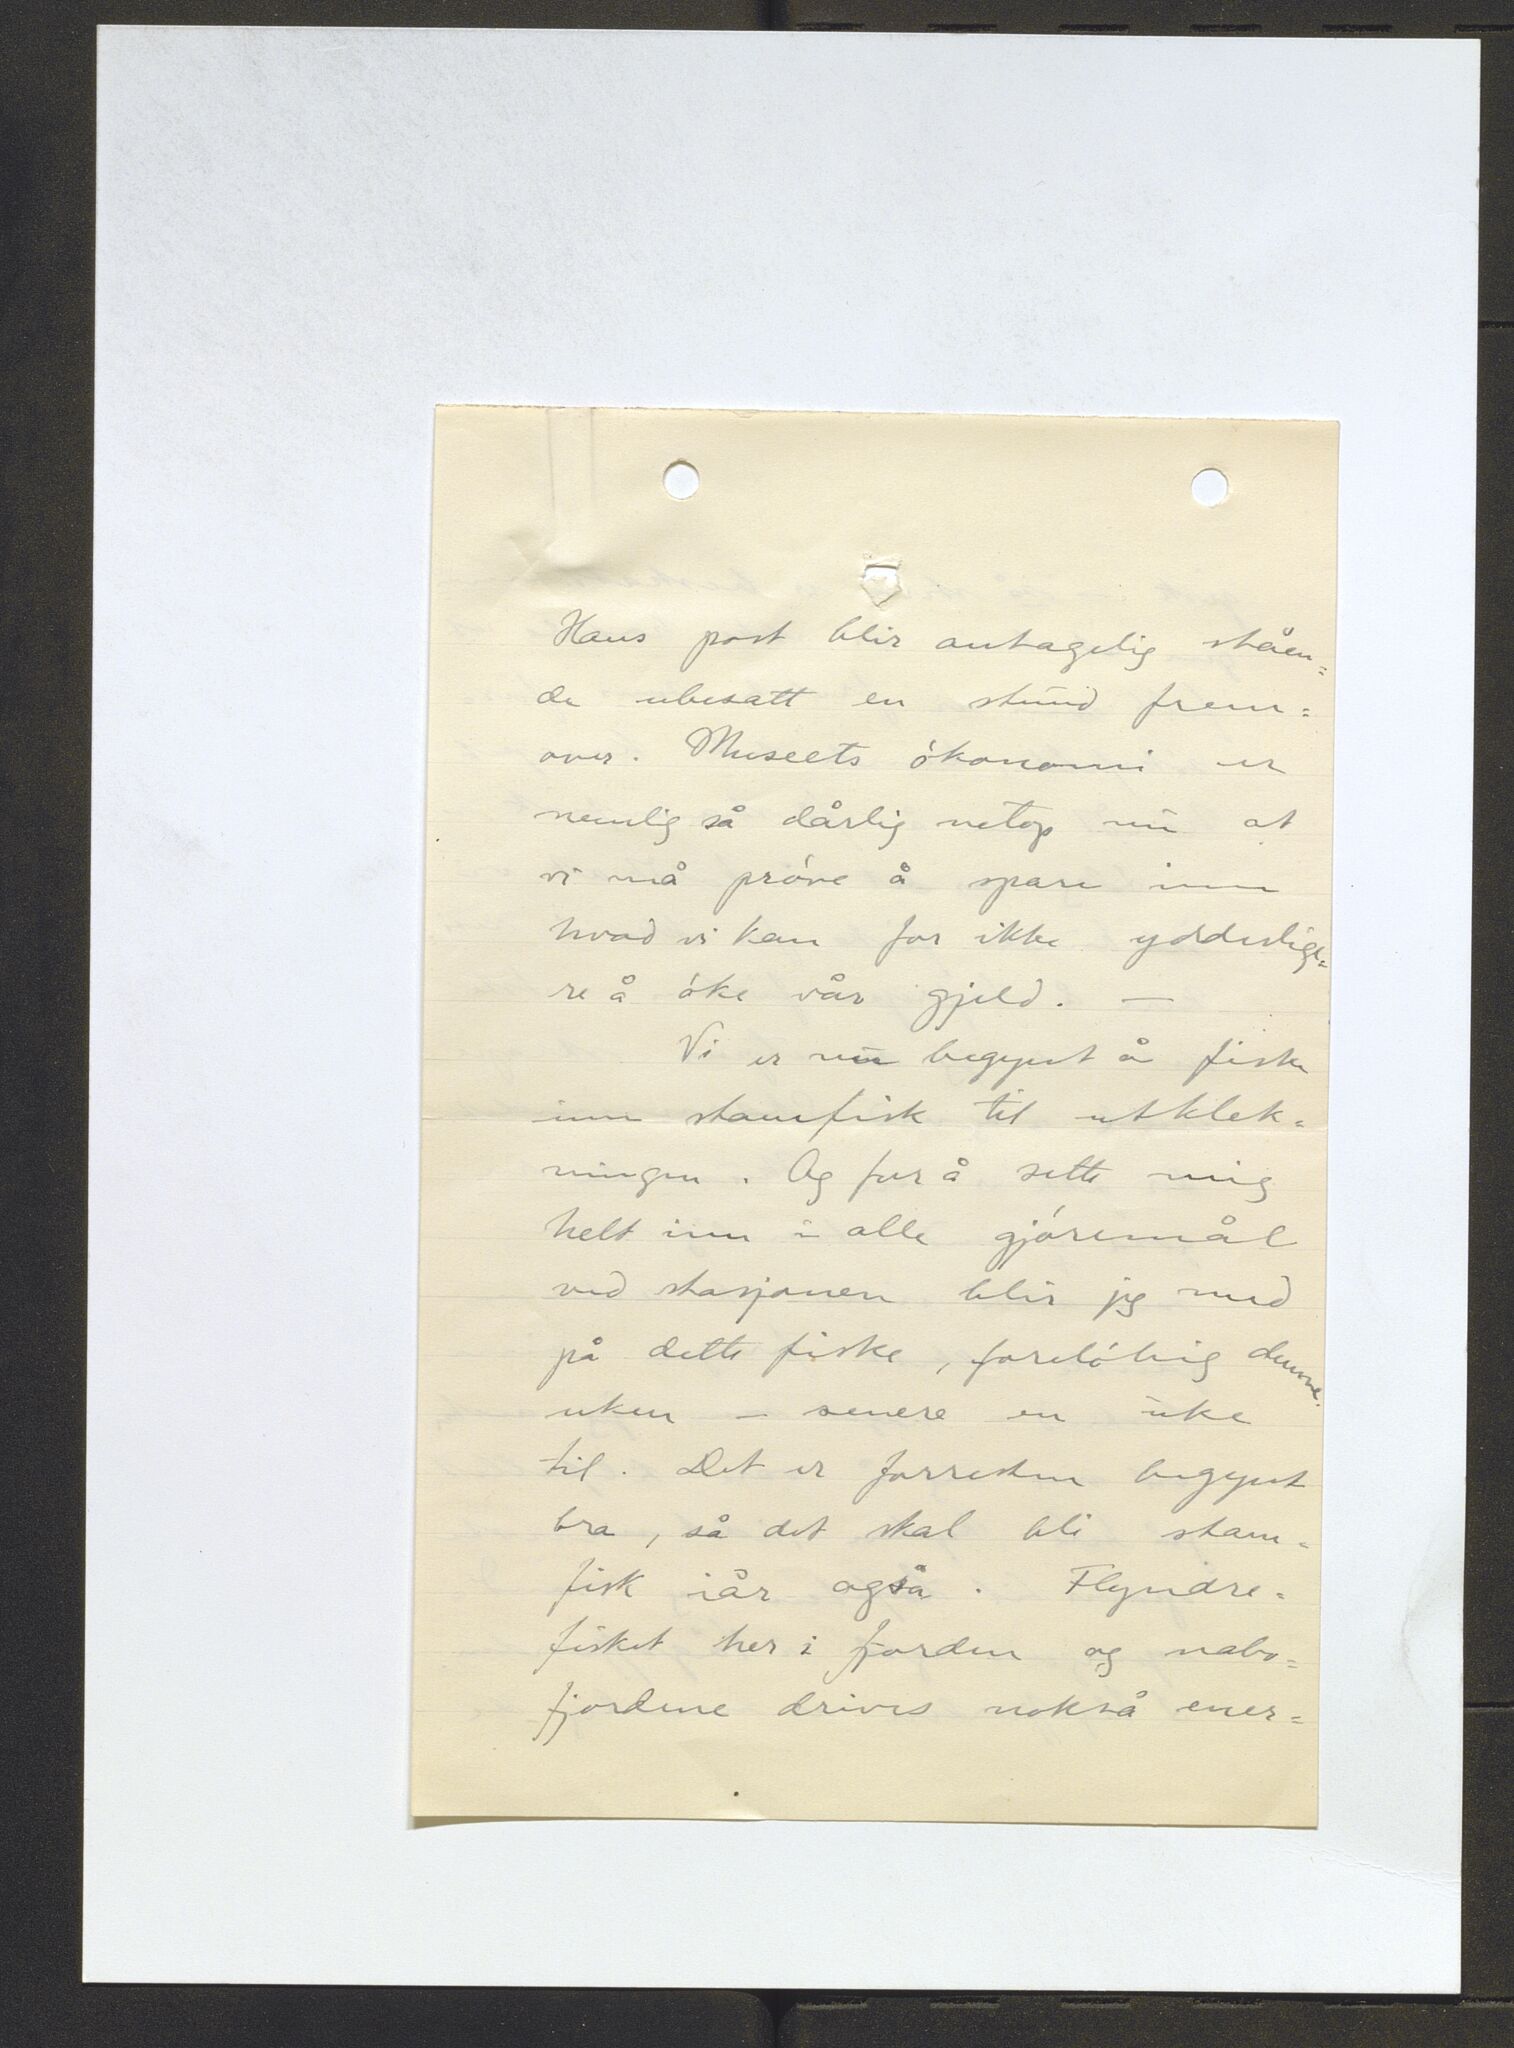 Hans post blir antagelig ståen=
de ubesatt en stund frem=
over. Museets økonomi er
nemlig så dårlig netop nu at
vi må prøve å spare inn
hvad vi kan for ikke ydderlige=
re å øke vår gjeld. —
Vi er nu begynt å fiske
inn stamfisk til utklek=
ningen. Og for å sette mig
helt inn i alle gjøremål
ved stasjonen blir jeg med
på dette fiske, foreløbig denne
uken — senere en uke
til. Det er forresten begynt
bra, så det skal bli stam=
fisk iår også. Flyndre=
fisket her i fjorden og nabo=
fjordene drives nokså ener=